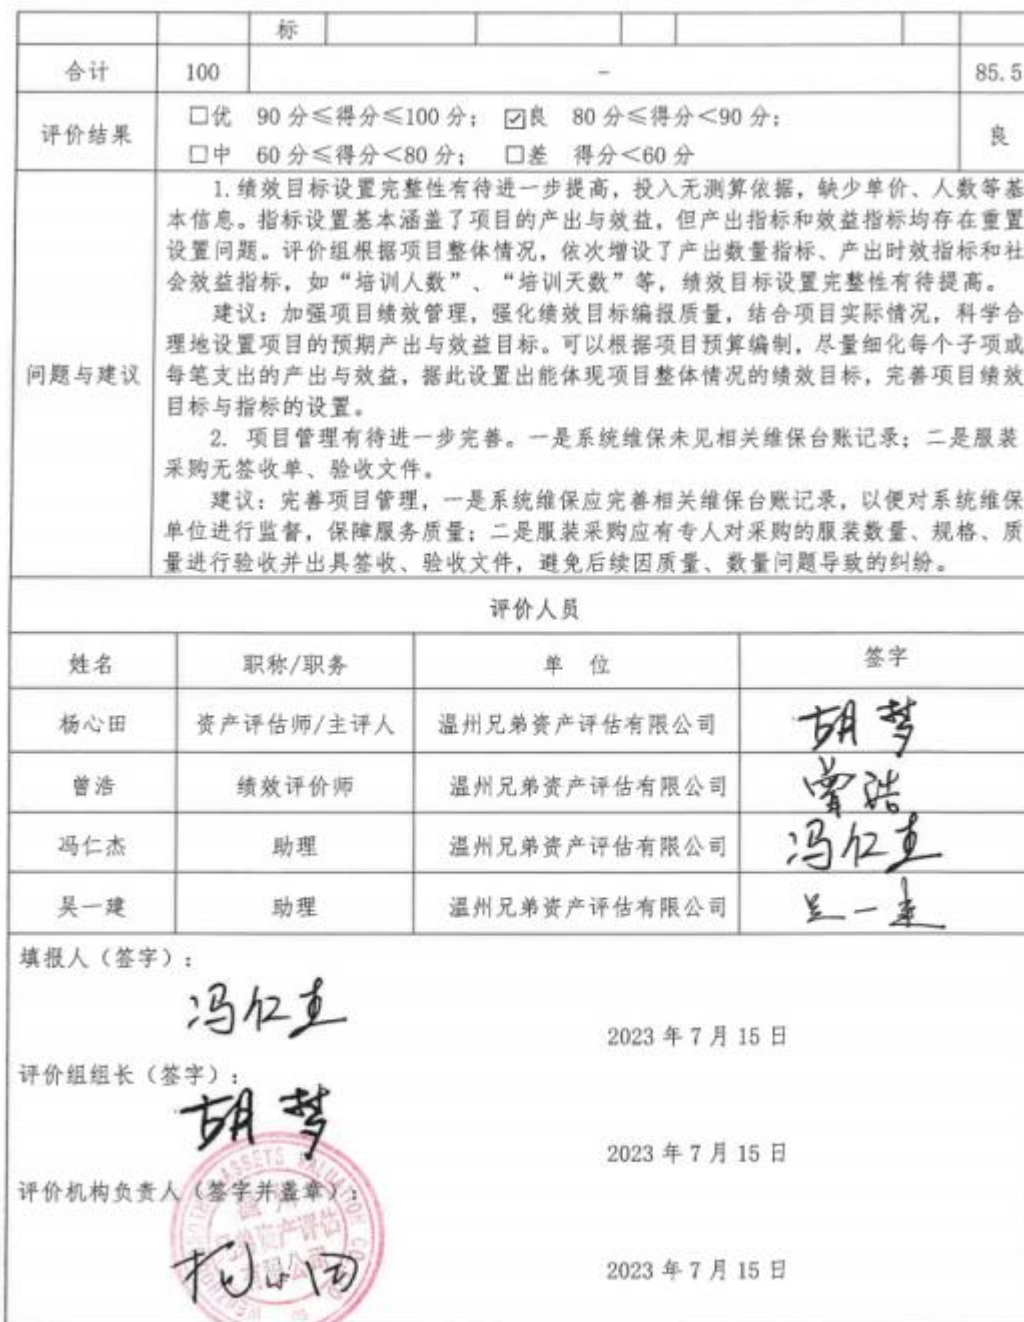 标
合计 100 - 85.5
评价结果 □优 90 分≤得分≤100 分； ☑良 80 分≤得分＜90 分； 良
□中 60 分≤得分＜80 分； □差 得分＜60 分
1.绩效目标设置完整性有待进一步提高，投入无测算依据，缺少单价、人数等基
本信息。指标设置基本涵盖了项目的产出与效益，但产出指标和效益指标均存在重置
设置问题。评价组根据项目整体情况，依次增设了产出数量指标、产出时效指标和社
会效益指标，如“培训人数”、“培训天数”等，绩效目标设置完整性有待提高。
建议：加强项目绩效管理，强化绩效目标编报质量，结合项目实际情况，科学合
理地设置项目的预期产出与效益目标。可以根据项目预算编制，尽量细化每个子项或
问题与建议 每笔支出的产出与效益，据此设置出能体现项目整体情况的绩效目标，完善项目绩效
目标与指标的设置。
2. 项目管理有待进一步完善。一是系统维保未见相关维保台账记录；二是服装
采购无签收单、验收文件。
建议：完善项目管理，一是系统维保应完善相关维保台账记录，以便对系统维保
单位进行监督，保障服务质量；二是服装采购应有专人对采购的服装数量、规格、质
量进行验收并出具签收、验收文件，避免后续因质量、数量问题导致的纠纷。
评价人员
姓名 职称/职务 单 位 签字
杨心田 资产评估师/主评人 温州兄弟资产评估有限公司 胡梦
曾浩 绩效评价师 温州兄弟资产评估有限公司 曾浩
冯仁杰 助理 温州兄弟资产评估有限公司 冯仁杰
吴一建 助理 温州兄弟资产评估有限公司 吴一建
填报人（签字）：
冯仁杰
2023 年 7 月 15 日
评价组组长（签字）：
胡梦
2023 年 7 月 15 日
评价机构负责人（签字并盖章）：
杨心田
2023 年 7 月 15 日